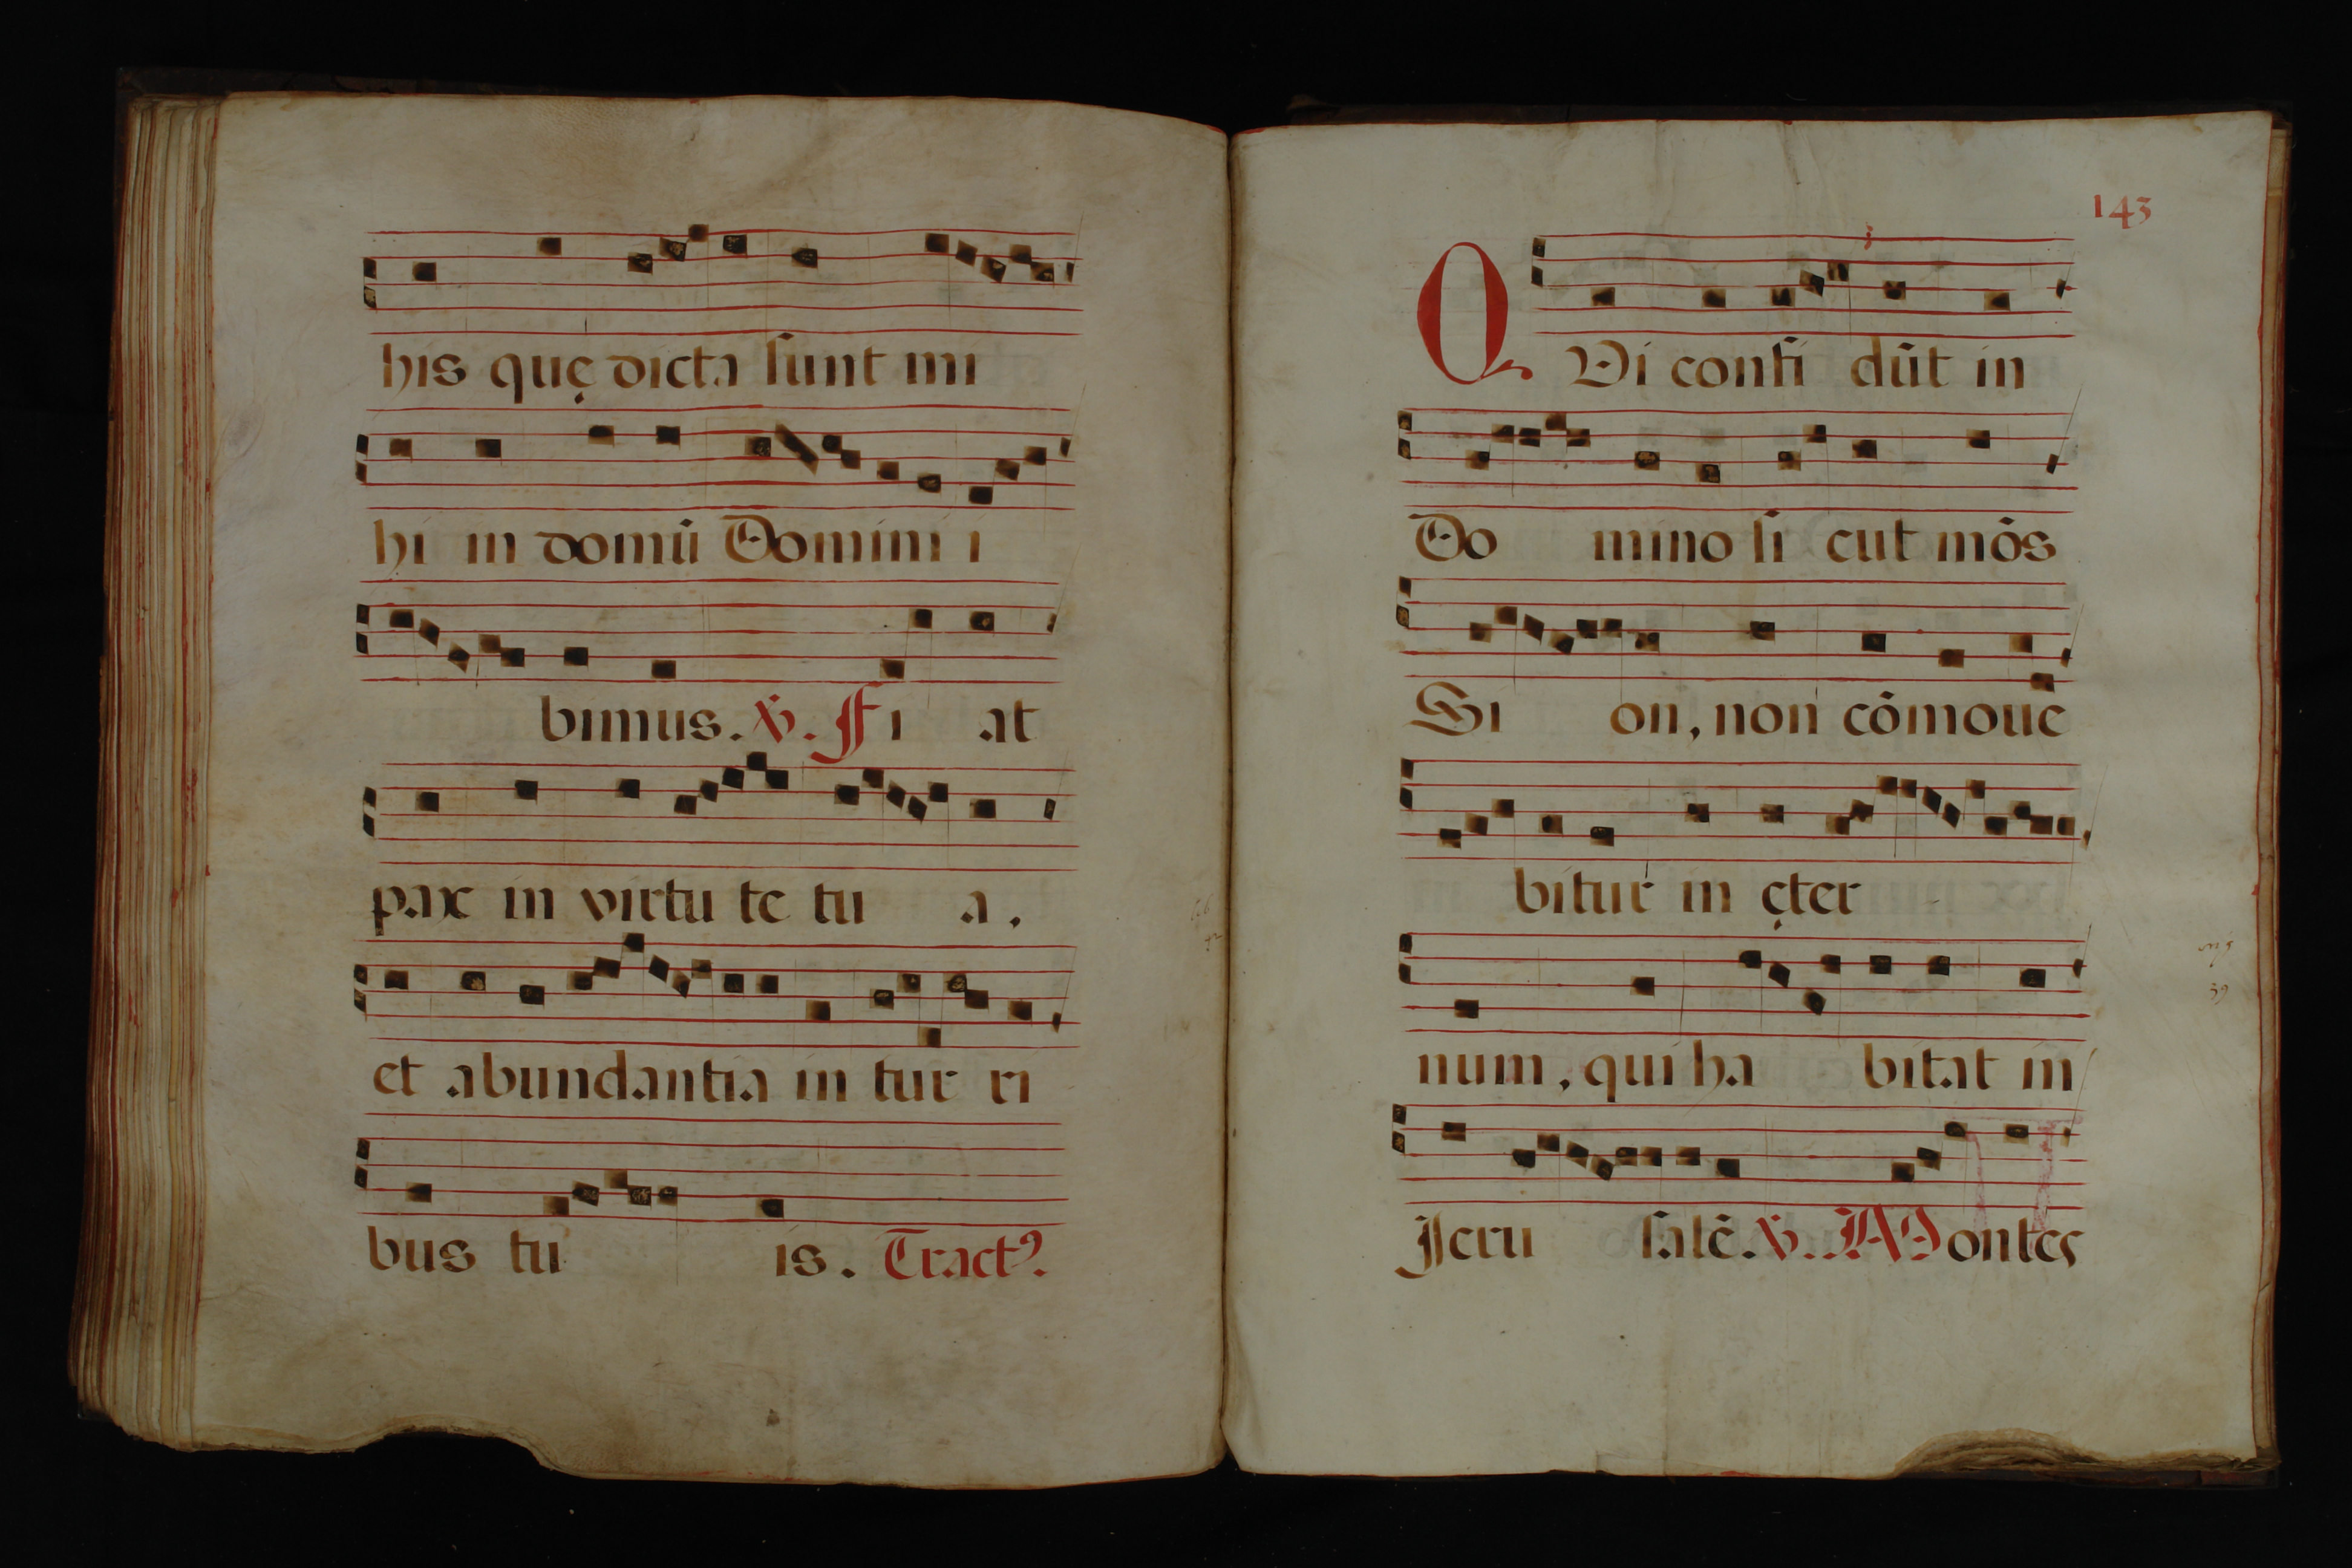 his quę dicta sunt mi
hi in domũ Domini i
bimus. ℣. Fi at
pax in virtu te tu a.
et abundantia in tur ri
bus tu is. Tractꝰ.
143
QVi confi dũt in
Do mino si cut mõs
Si on, non cõmoue
bitur in ęter
num, qui ha bitat in
Jeru salẽ. ℣. Montes